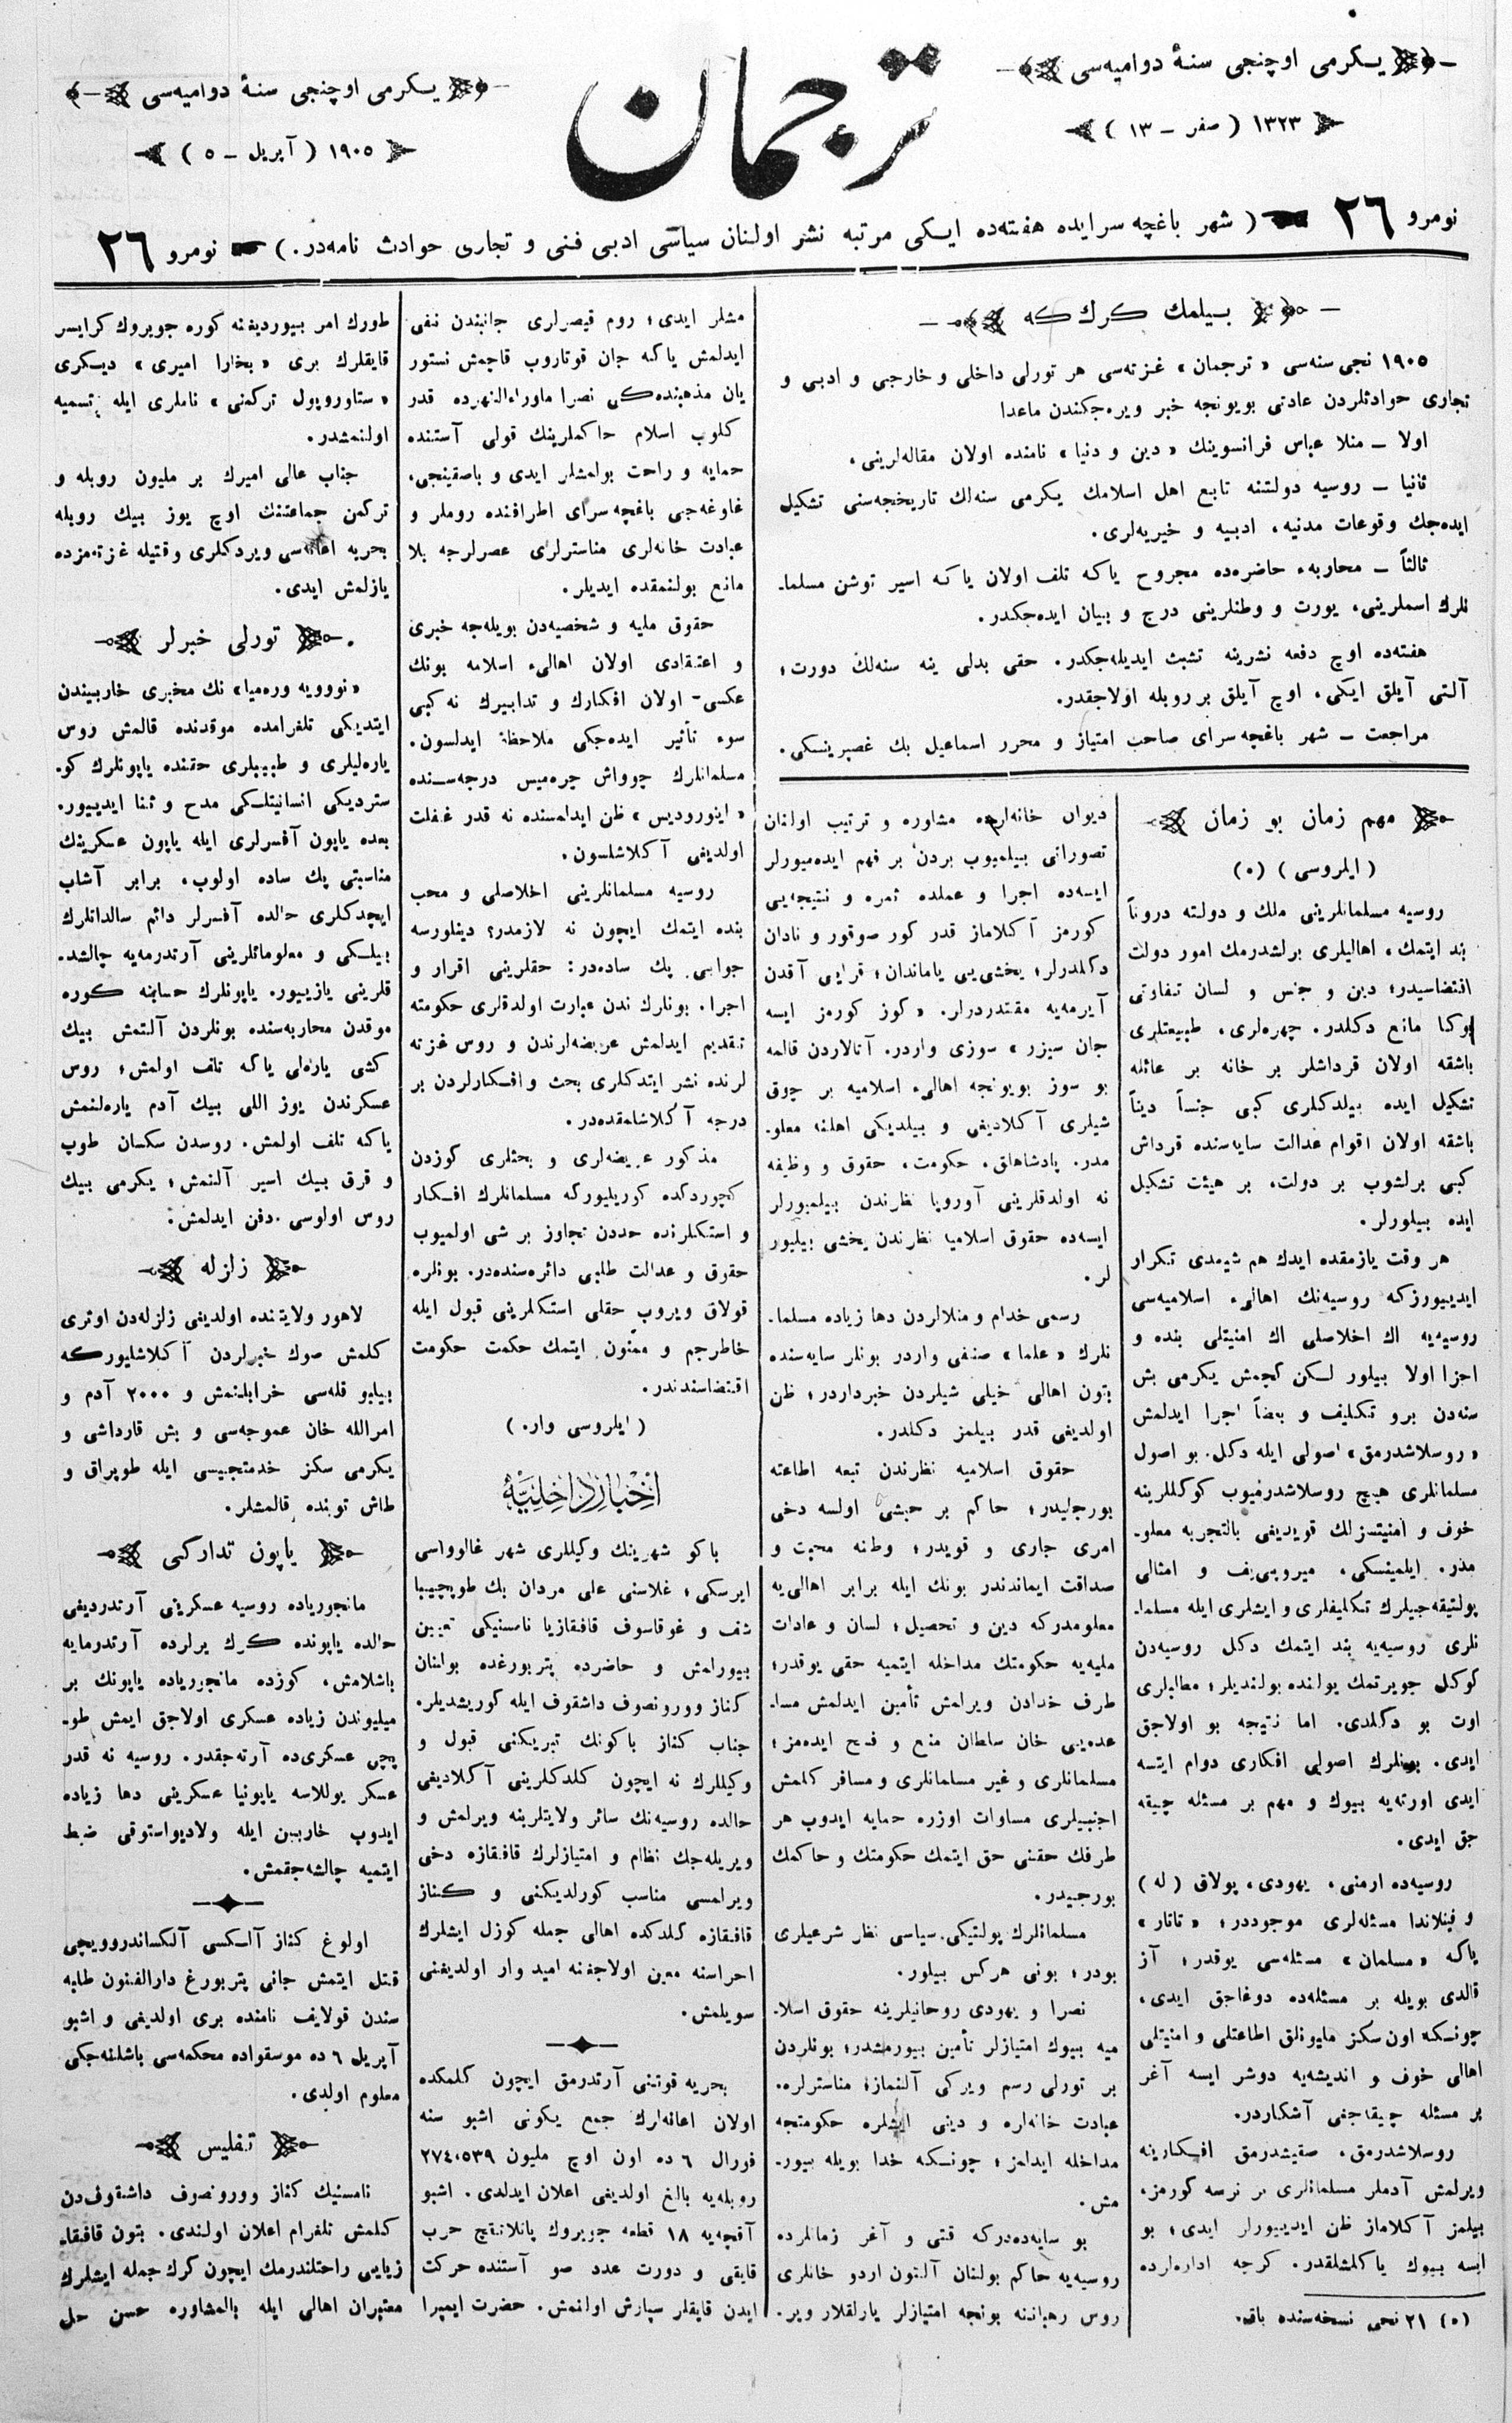 يكرمى اوچنجى سنۀ دواميه‌سى
١٣٢٣ ( صفر ــ ١٣ )
ترجمان
يكرمى اوچنجى سنۀ دواميه‌سى
١٩٠٥ ( آپريل ــ ٥ )
نومرو ٢٦ ( شهر باغچه سرايده هفته‌ده ايكى مرتبه نشر اولنان سياسى ادبى فنى و تجارى حوادث نامه‌در. ) نومرو ٢٦
بيلمك كرك كه
١٩٠٥ نجى سنه‌سى « ترجمان » غزته‌سى هر تورلى داخلى و خارجى و ادبى و
تجارى حوادثلردن عادتى بويونجه خبر ويره‌جكندن ماعدا
اولا ــ منلا عباس فرانسوينك « دين و دنيا » نامنده اولان مقاله‌لرينى،
ثانيا ــ روسيه دولتنه تابع اهل اسلامك يكرمى سنه‌لك تاريخجه‌سنى تشكيل
ايده‌جك وقوعات مدنيه، ادبيه و خيريه‌لرى.
ثالثاً ــ محاربهء حاضره‌ده مجروح ياكه تلف اولان ياكه اسير توشن مسلما-
نلرك اسملرينى، يورت و وطنلرينى درج و بيان ايده‌جكدر.
هفته‌ده اوچ دفعه نشرينه تشبث ايديله‌جكدر. حقى بدلى ينه سنه‌لك دورت؛
آلتى آيلق ايكى، اوچ آيلق بر روبله اولاجقدر.
مراجعت ــ شهر باغچه سراى صاحب امتياز و محرر اسماعيل بك غصپرينسكى.
مهم زمان بو زمان
( ايلروسى ) (٥)
روسيه مسلمانلرينى ملك و دولته دروناً
بند ايتمك، اهاليلرى برلشدرمك امور دولت
اقتضاسيدر؛ دين و جنس و لسان تفاوتى
بوكا مانع دكلدر. چهره‌لرى، طبيعتلرى
باشقه اولان قرداشلر بر خانه بر عائله
تشكيل ايده بيلدكلرى كبى جنساً ديناً
باشقه اولان اقوام عدالت سايه‌سنده قرداش
كبى برلشوب بر دولت، بر هيئت تشكيل
ايده بيلورلر.
هر وقت يازمقده ايدك هم شيمدى تكرار
ايدييورزكه روسيه‌نك اهالىء اسلاميه‌سى
روسيه‌يه اك اخلاصلى اك امنيتلى بنده و
اجزا اولا بيلور لكن كچمش يكرمى بش
سنه‌دن برو تكليف و بعضاً اجرا ايدلمش
« روسلاشدرمق » اصولى ايله دكل. بو اصول
مسلمانلرى هيچ روسلاشدرميوب كوكللرينه
خوف و امنيتسزلك قويديغى بالتجربه معلو-
مدر. ايلمينسكى، ميروپييف و امثالى
پولتيقه‌جيلرك تكليفلرى و ايشلرى ايله مسلما-
نلرى روسيه‌يه بند ايتمك دكل روسيه‌دن
كوكل جويرتمك يولنده بولنديلر؛ مطالبلرى
اوت بو دكلدى. اما نتيجه بو اولاجق
ايدى. بونلرك اصولى افكارى دوام ايتسه
ايدى اورته‌يه بيوك و مهم بر مسئله چيقه
جق ايدى.
روسيه‌ده ارمنى، يهودى، پولاق ( له )
و فينلاندا مسئله‌لرى موجوددر؛ « تاتار »
ياكه « مسلمان » مسئله‌سى يوقدر؛ آز
قالدى بويله بر مسئله‌ده دوغاجق ايدى،
چونكه اون سكز مليونلق اطاعتلى و امنيتلى
اهالى خوف و انديشه‌يه دوشر ايسه آغر
بر مسئله چيقاجغى آشكاردر.
روسلاشدرمق، صقيشدرمق افكارينه
ويرلمش آدملر مسلمانلرى بر نرسه كورمز،
بيلمز آكلاماز ظن ايدييورلر ايدى؛ بو
ايسه بيوك ياكلشلقدر. كرچه اداره‌لرده
(٥) ٢١ نجى نسخه‌سنده باق.
ديوان خانه‌لرده مشاوره و ترتيب اولنان
تصوراتى بيلميوب بردن بر فهم ايده‌ميورلر
ايسه‌ده اجرا و عملده ثمره و نتيجه‌يى
كورمز آكلاماز قدر كور صوقور و نادان
دكلدرلر؛ يخشى‌يى ياماندان؛ قرايى آقدن
آيرمه‌يه مقتدردرلر. « كوز كورمز ايسه
جان سيزر » سوزى واردر. آتالاردن قالمه
بو سوز بويونجه اهالىء اسلاميه بر چوق
شيلرى آكلاديغى و بيلديكى اهلنه معلو-
مدر. پادشاهلق، حكومت، حقوق و وظيفه
نه اولدقلرينى آوروپا نظرندن بيلميورلر
ايسه‌ده حقوق اسلاميا نظرندن يخشى بيليور
لر.
رسمى خدام و منلالردن دها زياده مسلما-
نلرك « علما » صنفى واردر بونلر سايه‌سنده
بتون اهالى خيلى شيلردن خبرداردر؛ ظن
اولديغى قدر بيلمز دكلدر.
حقوق اسلاميه نظرندن تبعه اطاعته
بورجليدر؛ حاكم بر حبشى اولسه دخى
امرى جارى و قويدر؛ وطنه محبت و
صداقت ايماندندر بونك ايله برابر اهالى‌يه
معلومدركه دين و تحصيل؛ لسان و عادات
مليه‌يه حكومتك مداخله ايتميه حقى يوقدر؛
طرف خدادن ويرلمش تأمين ايدلمش مسا-
عده‌يى خان سلطان منع و فسخ ايده‌مز؛
مسلمانلرى و غير مسلمانلرى و مسافر كلمش
اجنبيلرى مساوات اوزره حمايه ايدوب هر
طرفك حقنى حق ايتمك حكومتك و حاكمك
بورجيدر.
مسلمانلرك پولتيكى، سياسى نظر شرعيلرى
بودر؛ بونى هركس بيلور.
نصرا و يهودى روحانيلرينه حقوق اسلا-
ميه بيوك امتيازلر تأمين بيورمشدر؛ بونلردن
بر تورلى رسم ويركى آلنماز؛ مناسترلره،
عبادت خانه‌لره و دينى ايشلره حكومتجه
مداخله ايدلمز؛ چونكه خدا بويله بيور-
مش.
بو سايه‌ده‌دركه قتى و آغر زمانلرده
روسيه‌يه حاكم بولنان آلتون اردو خانلرى
روس رهباننه بونجه امتيازلر يارلقلار وير-
مشلر ايدى؛ روم قيصرلرى جانبندن نفى
ايدلمش ياكه جان قوتاروب قاچمش نستور
يان مذهبنده‌كى نصرا ماوراءالنهرده قدر
كلوب اسلام حاكملرينك قولى آستنده
حمايه و راحت بولمشلر ايدى و باصقينجى،
غاوغه‌جى باغچه سراى اطرافنده روملر و
عبادت خانه‌لرى مناسترلرى عصرلرجه بلا
مانع بولنمقده ايديلر.
حقوق مليه و شخصيه‌دن بويله‌جه خبرى
و اعتقادى اولان اهالىء اسلامه بونك
عكسى اولان افكارك و تدابيرك نه كبى
سوء تأثير ايده‌جكى ملاحظه ايدلسون.
مسلمانلرك چوواش چرميس درجه‌سنده
« اينوروديس » ظن ايدلمسنده نه قدر غفلت
اولديغى آكلاشلسون.
روسيه مسلمانلرينى اخلاصلى و محب
بنده ايتمك ايچون نه لازمدر؟ دينلورسه
جوابى پك ساده‌در: حقلرينى اقرار و
اجرا. بونلرك ندن عبارت اولدقلرى حكومته
تقديم ايدلمش عريضه‌لرندن و روس غزته
لرنده نشر ايتدكلرى بحث و افكارلردن بر
درجه آكلاشلمقده‌در.
مذكور عريضه‌لرى و بحثلرى كوزدن
كچوردكده كوريليوركه مسلمانلرك افكار
و استكلرنده حددن تجاوز بر شى اولميوب
حقوق و عدالت طلبى دائره‌سنده‌در. بونلره
قولاق ويروب حقلى استكلرينى قبول ايله
خاطرجم و ممنون ايتمك حكمت حكومت
اقتضاسندندر.
( ايلروسى وار. )
اخبار داخليه
باكو شهرينك وكيللرى شهر غالوواسى
ايرسكى؛ غلاسنى على مردان بك طوپچيبا
شف و غوقاسوف قافقازيا نامستنيكى تعيين
بيورلمش و حاضرده پتربورغده بولنان
كناز وورونصوف داشقوف ايله كوريشديلر.
جناب كناز باكونك تبريكنى قبول و
وكيللرك نه ايچون كلدكلرينى آكلاديغى
حالده روسيه‌نك سائر ولايتلرينه ويرلمش و
ويريله‌جك نظام و امتيازلرك قافقازه دخى
ويرلمسى مناسب كورلديكنى و كناز
قافقازه كلدكده اهالى جمله كوزل ايشلرك
اجراسنه معين اولاجغنه اميد وار اولديغنى
سويلمش.
بحريه قوتنى آرتدرمق ايچون كلمكده
اولان اعانه‌لرك جمع يكونى اشبو سنه
فورال ٦ ده اون اوچ مليون ٢٧٤،٥٣٩
روبله‌يه بالغ اولديغى اعلان ايدلدى. اشبو
آقچه‌يه ١٨ قطعه جويروك پانلانقيچ حرب
قايقى و دورت عدد صو آستنده حركت
ايدن قايقلر سپارش اولنمش. حضرت ايمپرا
طورك امر بيورديغنه كوره جويروك كرايسر
قايقلرك برى « بخارا اميرى » ديكرى
« ستاوروپول تركمنى » ناملرى ايله تسميه
اولنمشدر.
جناب عالى اميرك بر مليون روبله و
تركمن جماعتنك اوچ يوز بيك روبله
بحريه اعانه‌سى ويردكلرى وقتيله غزته‌مزده
يازلمش ايدى.
تورلى خبرلر
« نوويه وره‌ميا » نك مخبرى خاربيندن
ايتديكى تلغرامده موقدنده قالمش روس
ياره‌ليلرى و طبيبلرى حقنده ياپونلرك كو-
ستردیكى انسانيتلكى مدح و ثنا ايدييور.
بعده ياپون آفسرلرى ايله ياپون عسكرينك
مناسبتى پك ساده اولوب، برابر آشاب
ايچدكلرى حالده آفسرلر دائم سالداتلرك
بيلكى و معلوماتلرينى آرتدرمه‌يه چالشد-
قلرينى يازييور. ياپونلرك حسابنه كوره
موقدن محاربه‌سنده بونلردن آلتمش بيك
كشى ياره‌لى ياكه تلف اولمش؛ روس
عسكرندن يوز اللى بيك آدم ياره‌لنمش
ياكه تلف اولمش. روسدن سكسان طوپ
و قرق بيك اسير آلنمش؛ يكرمى بيك
روس اولوسى دفن ايدلمش.
زلزله
لاهور ولايتنده اولديغى زلزله‌دن اوترى
كلمش صوك خبرلردن آكلاشليوركه
بيليو قله‌سى خرابلنمش و ٢٠٠٠ آدم و
امرالله خان عموجه‌سى و بش قارداشى و
يكرمى سكز خدمتجيسى ايله طوپراق و
طاش توبنده قالمشلر.
ياپون تداركى
مانجورياده روسيه عسكرينى آرتدرديغى
حالده ياپونده كرك يرلرده آرتدرمايه
باشلامش، كوزده مانجورياده ياپونك بر
ميليوندن زياده عسكرى اولاجق ايمش طو-
پچى عسكرى‌ده آرته‌جقدر. روسيه نه قدر
عسكر يوللاسه ياپونيا عسكرينى دها زياده
ايدوب خاربين ايله ولاديواستوقى ضبط
ايتميه چالشه‌جقمش.
اولوغ كناز آلكسى آلكساندروويچى
قتل ايتمش جانى پتربورغ دارالفنون طلبه
سندن قولايف نامنده برى اولديغى و اشبو
آپريل ٦ ده موسقواده محكمه‌سى باشلنه‌جكى
معلوم اولدى.
تفليس
نامستنيك كناز وورونصوف داشقوف‌دن
كلمش تلغرام اعلان اولندى. بتون قافقا-
زيايى راحتلندرمك ايچون كرك جمله ايشلرك
معتبران اهالى ايله بالمشاوره حسن حل